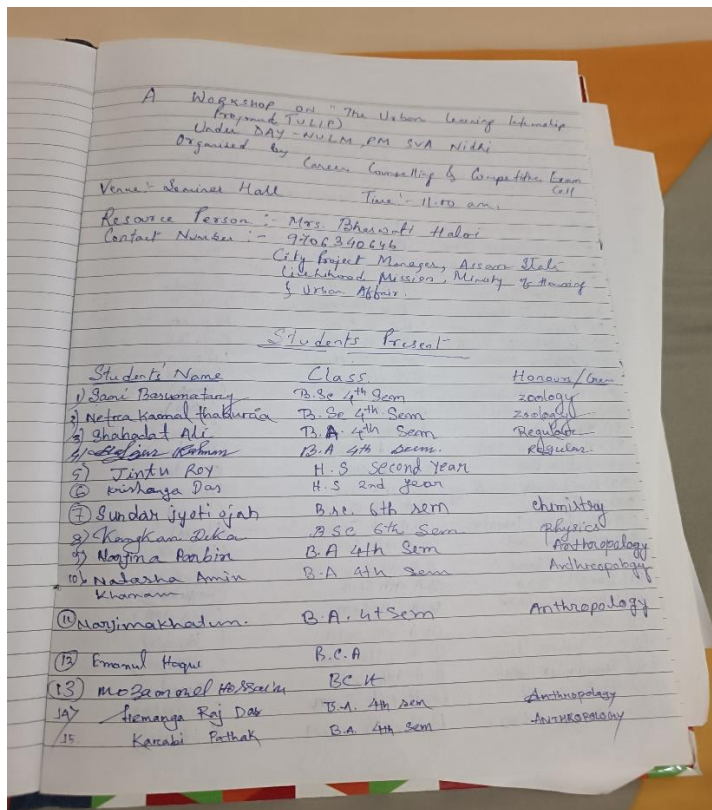 A Workshop on "The Urban Learning Internship
Program (TULIP)
Under DAY-NULM, PM SVA Nidhi
Organised by
Career Counselling & Competitive Exam
Cell
Venue:- Seminar Hall Time:- 11.00 am.
Resource Person :- Mrs. Bhaswati Haloi
Contact Number :- 9706340646
City Project Manager, Assam State
Livelihood Mission, Ministy of Housing
& Urban Affair.
Students Present
Students' Name Class. Honours/
1) Sani Basumatary B.Sc 4th Sem zoology
2) Netra Kamal thakuria B.Sc 4th Sem zoology
3) Shahadat Ali B.A. 4th Sem Regular
4) Rahman B.A 4th Sem. Regular.
5) Jintu Roy H.S Second Year
6 Krishanga Das H.S 2nd year
7 Sundar jyoti ojah B.sc. 6th sem chemistry
8) Kangkan Deka BSC 6th Sem Physics
9) Narjina Parbin B.A 4th Sem Anthropology
10) Natasha Amin B.A 4th Sem Anthropology
Khanam
11 Narjimakhatun. B.A. 4t Sem Anthropology
12 Emanul Hoque B.C.A
13) Mozammel Hossain BCA
14) Hemanga Raj Das B.A. 4th sem Anthropology
15 Karabi Pathak B.A. 4th Sem ANTHROPOLOGY